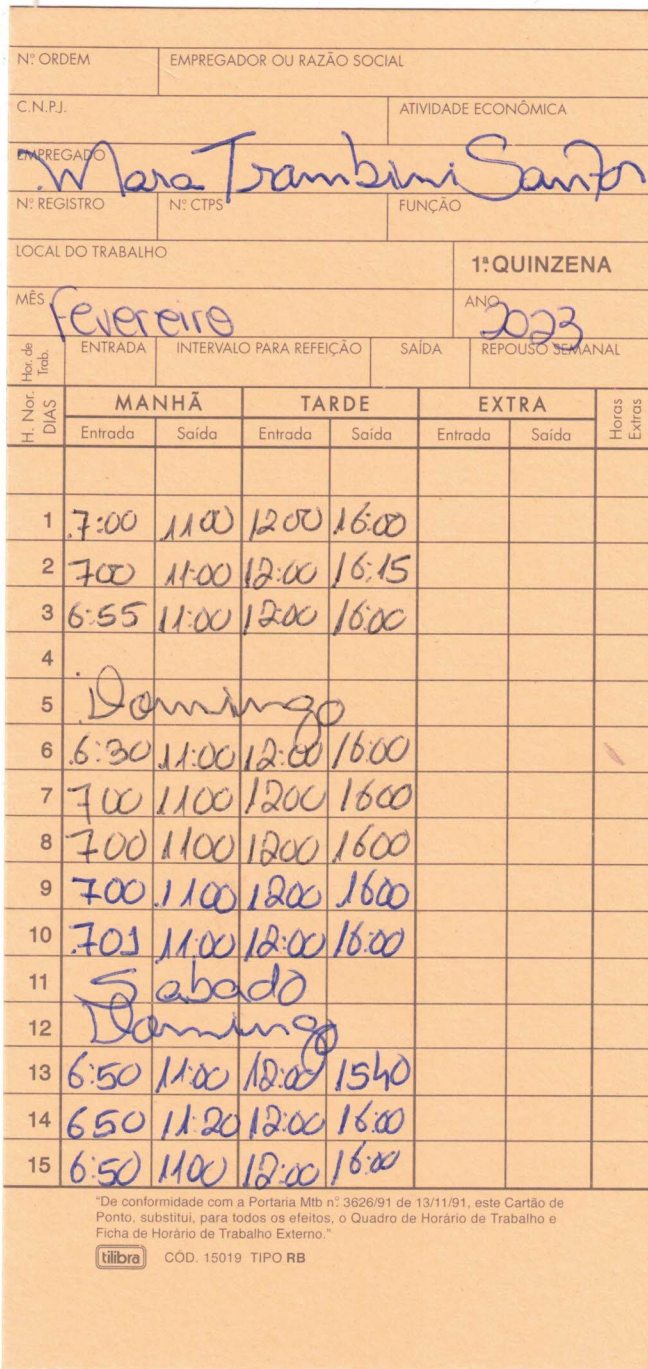 Nº ORDEM EMPREGADOR OU RAZÃO SOCIAL
C.N.P.J. ATIVIDADE ECONÔMICA
EMPREGADO
Mara Trambini Santos
Nº REGISTRO Nº CTPS FUNÇÃO
LOCAL DO TRABALHO 1ª QUINZENA
MÊS fevereiro ANO 2023
Hor. de Trab. ENTRADA INTERVALO PARA REFEIÇÃO SAÍDA REPOUSO SEMANAL
H. Nor. DIAS MANHÃ TARDE EXTRA Horas Extras
Entrada Saída Entrada Saída Entrada Saída
1 7:00 11 00 12 00 16:00
2 700 11:00 12:00 16:15
3 6:55 11:00 12:00 16:00
4
5 Domingo
6 6:30 11:00 12:00 16:00
7 700 1100 1200 1600
8 700 1100 1200 1600
9 700 1100 1200 1600
10 701 11:00 12:00 16:00
11 Sabado
12 Domingo
13 6:50 11:00 12:00 1540
14 650 11:20 12:00 16:00
15 6:50 1100 12:00 16:00
"De conformidade com a Portaria Mtb nº 3626/91 de 13/11/91, este Cartão de
Ponto, substitui, para todos os efeitos, o Quadro de Horário de Trabalho e
Ficha de Horário de Trabalho Externo."
tilibra CÓD. 15019 TIPO RB